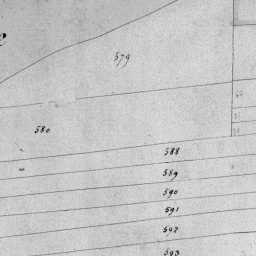 579
580
588
589
590
591
592
593